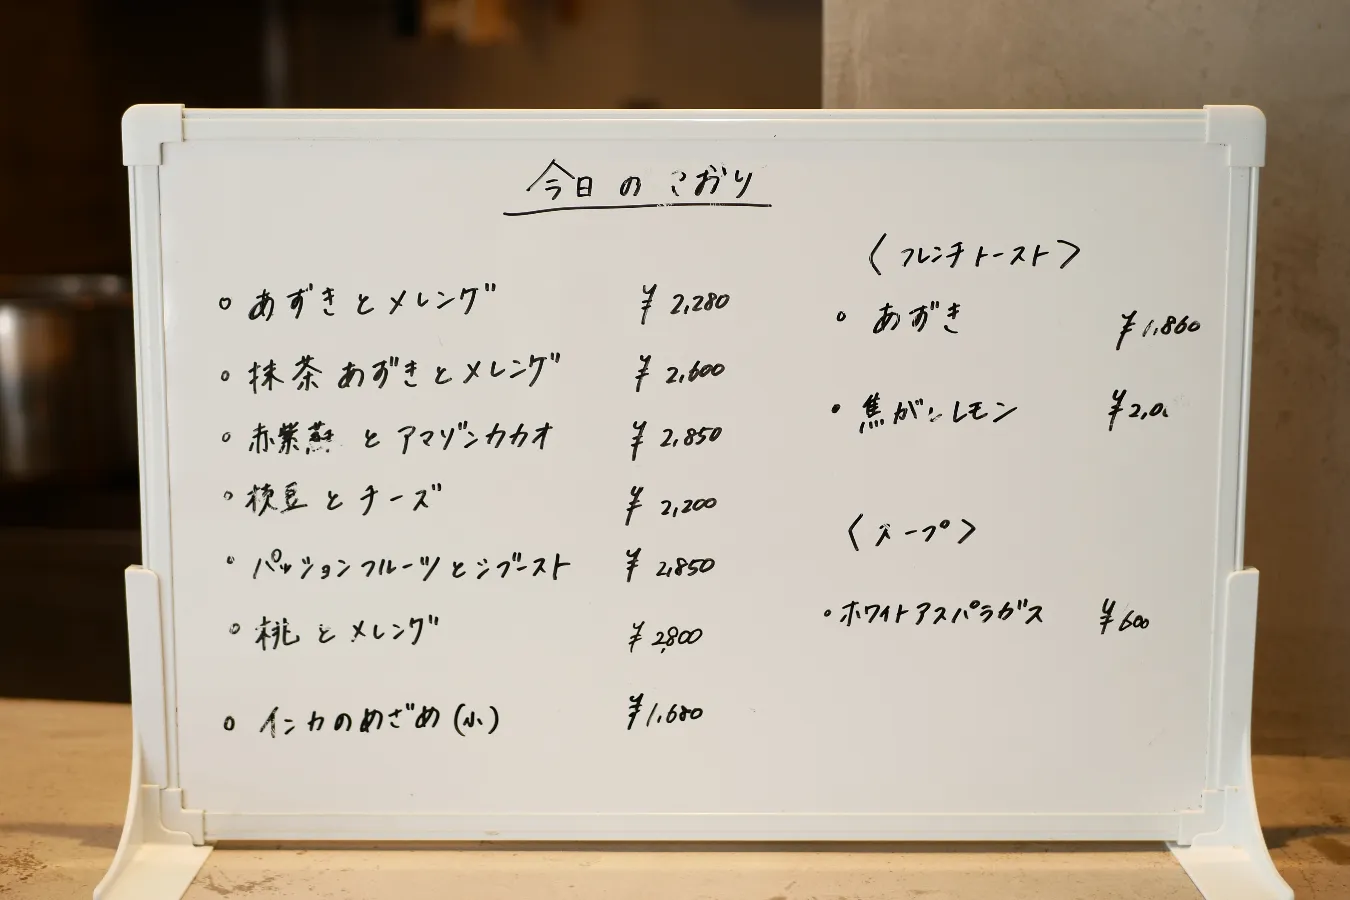 今日の こおり
○ あずきとメレンゲ ¥2,280
○ 抹茶あずきとメレンゲ ¥2,600
○ 赤紫蘇とアマゾンカカオ ¥2,850
○ 枝豆とチーズ ¥2,200
○ パッションフルーツとシブースト ¥2,850
○ 桃とメレンゲ ¥2,800
○ インカのめざめ(小) ¥1,680
〈フレンチトースト〉
○ あずき ¥1,860
・ 焦がしレモン
〈スープ〉
・ホワイトアスパラガス ¥600